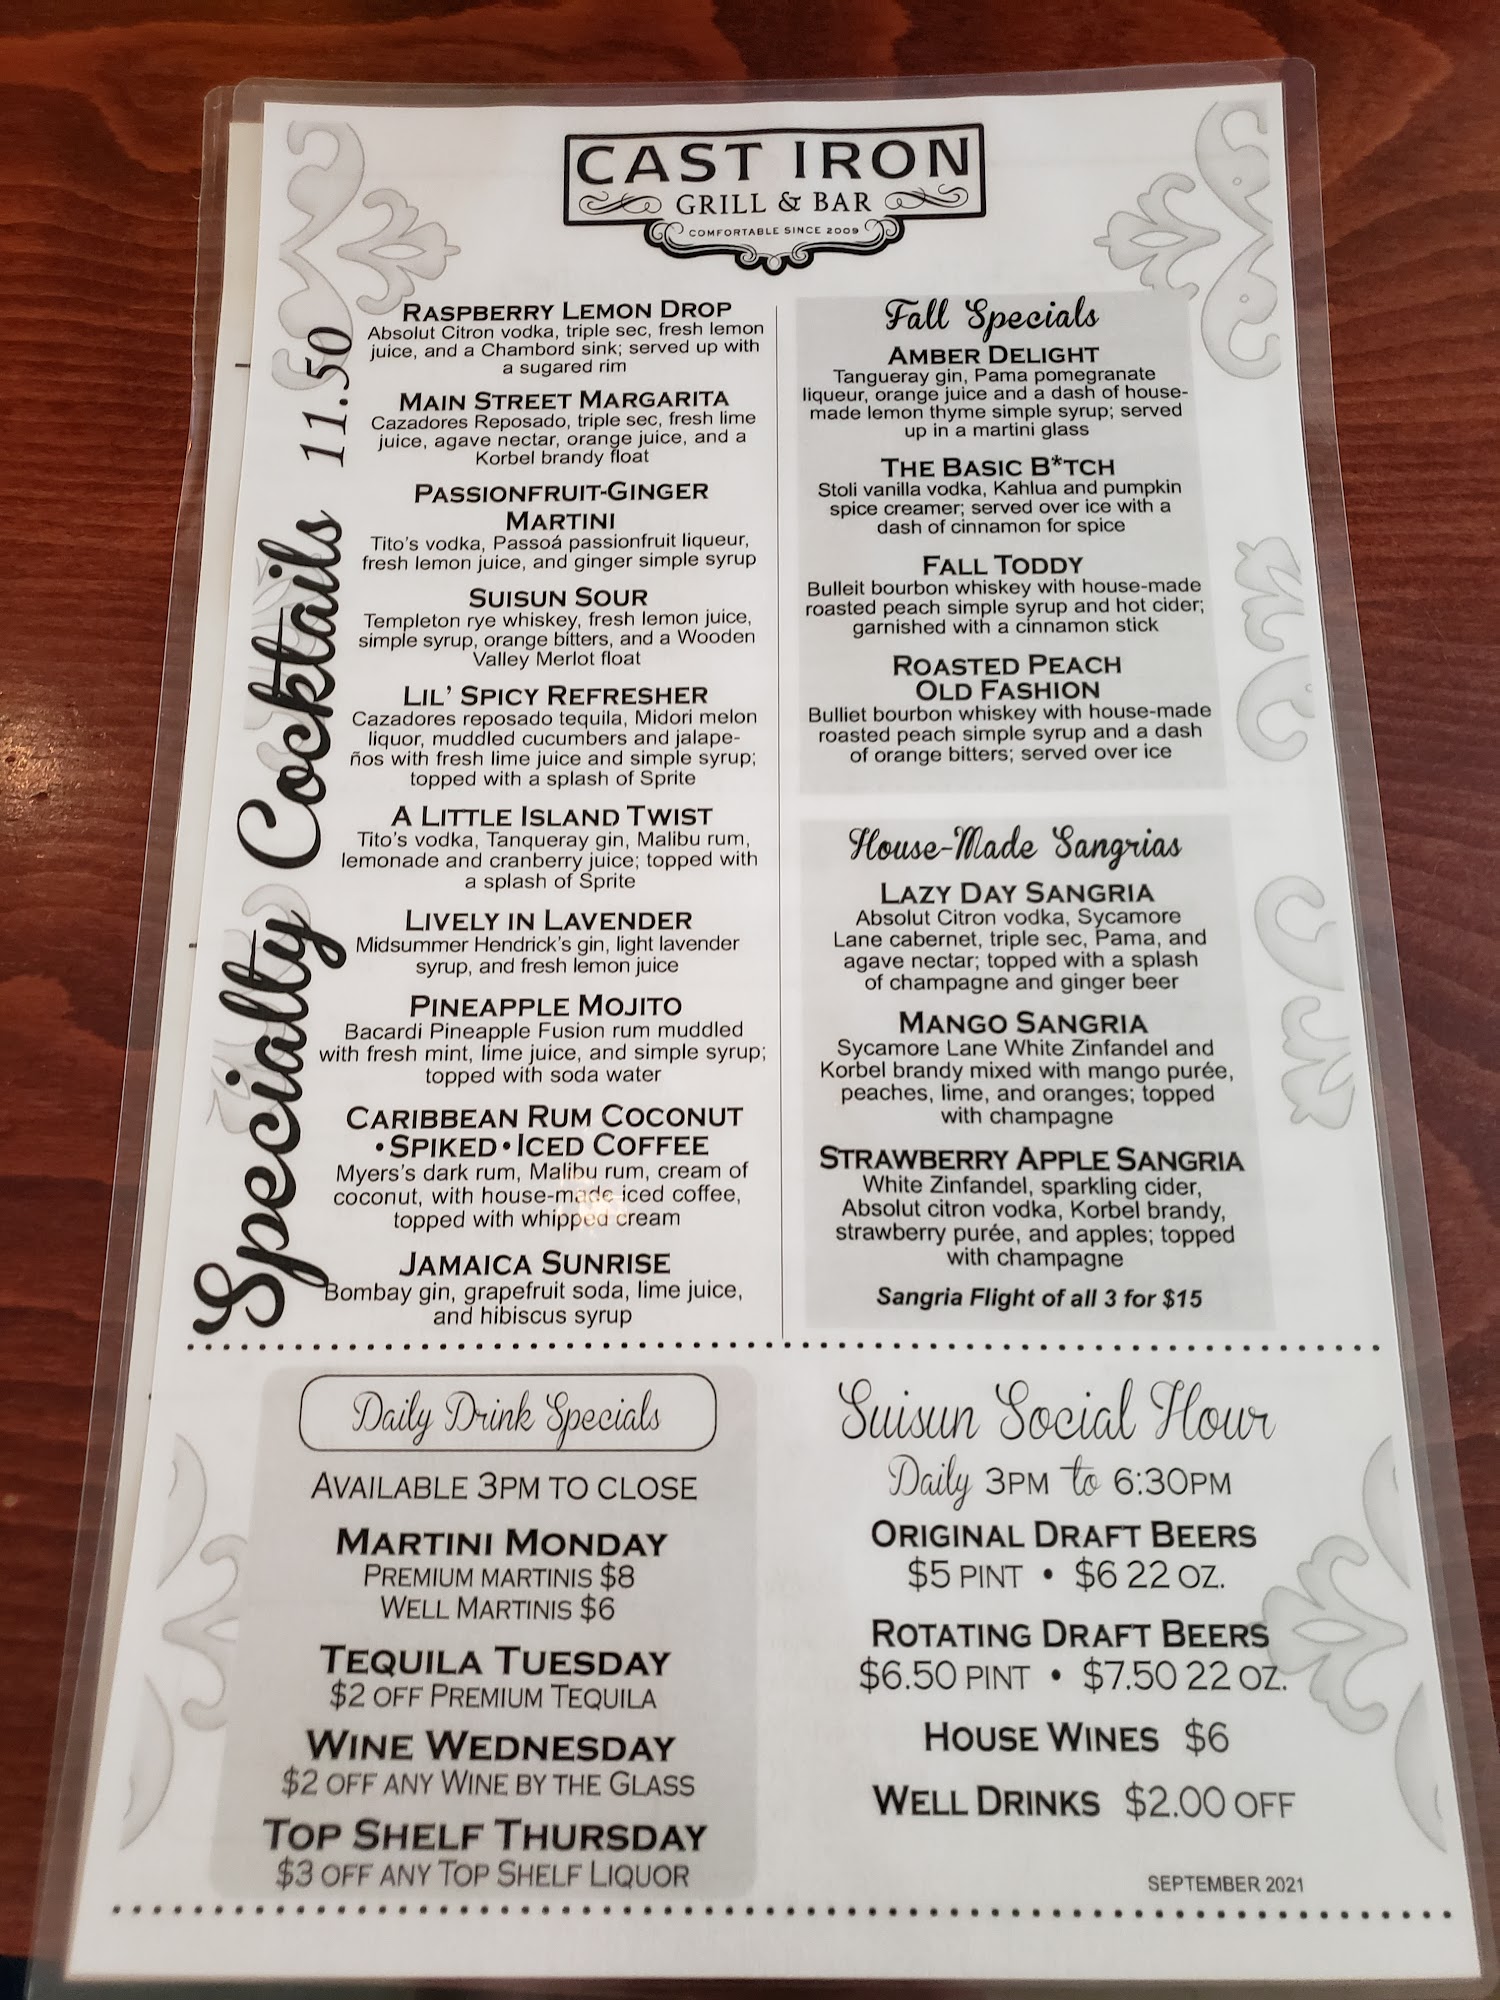 CAST IRON
GRILL & BAR
COMFORTABLE SINCE 2009
Specialty Cocktails 11.50
RASPBERRY LEMON DROP
Absolut Citron vodka, triple sec, fresh lemon
juice, and a Chambord sink; served up with
a sugared rim
MAIN STREET MARGARITA
Cazadores Reposado, triple sec, fresh lime
juice, agave nectar, orange juice, and a
Korbel brandy float
PASSIONFRUIT-GINGER
MARTINI
Tito's vodka, Passoá passionfruit liqueur,
fresh lemon juice, and ginger simple syrup
SUISUN SOUR
Templeton rye whiskey, fresh lemon juice,
simple syrup, orange bitters, and a Wooden
Valley Merlot float
LIL' SPICY REFRESHER
Cazadores reposado tequila, Midori melon
liquor, muddled cucumbers and jalape-
ños with fresh lime juice and simple syrup;
topped with a splash of Sprite
A LITTLE ISLAND TWIST
Tito's vodka, Tanqueray gin, Malibu rum,
lemonade and cranberry juice; topped with
a splash of Sprite
LIVELY IN LAVENDER
Midsummer Hendrick's gin, light lavender
syrup, and fresh lemon juice
PINEAPPLE MOJITO
Bacardi Pineapple Fusion rum muddled
with fresh mint, lime juice, and simple syrup;
topped with soda water
CARIBBEAN RUM COCONUT
•SPIKED•ICED COFFEE
Myers's dark rum, Malibu rum, cream of
coconut, with house-made iced coffee,
topped with whipped cream
JAMAICA SUNRISE
Bombay gin, grapefruit soda, lime juice,
and hibiscus syrup
Fall Specials
AMBER DELIGHT
Tangueray gin, Pama pomegranate
liqueur, orange juice and a dash of house-
made lemon thyme simple syrup; served
up in a martini glass
THE BASIC B*TCH
Stoli vanilla vodka, Kahlua and pumpkin
spice creamer; served over ice with a
dash of cinnamon for spice
FALL TODDY
Bulleit bourbon whiskey with house-made
roasted peach simple syrup and hot cider;
garnished with a cinnamon stick
ROASTED PEACH
OLD FASHION
Bulliet bourbon whiskey with house-made
roasted peach simple syrup and a dash
of orange bitters; served over ice
House-Made Sangrias
LAZY DAY SANGRIA
Absolut Citron vodka, Sycamore
Lane cabernet, triple sec, Pama, and
agave nectar; topped with a splash
of champagne and ginger beer
MANGO SANGRIA
Sycamore Lane White Zinfandel and
Korbel brandy mixed with mango purée,
peaches, lime, and oranges; topped
with champagne
STRAWBERRY APPLE SANGRIA
White Zinfandel, sparkling cider,
Absolut citron vodka, Korbel brandy,
strawberry purée, and apples; topped
with champagne
Sangria Flight of all 3 for $15
Daily Drink Specials
AVAILABLE 3PM TO CLOSE
MARTINI MONDAY
PREMIUM MARTINIS $8
WELL MARTINIS $6
TEQUILA TUESDAY
$2 OFF PREMIUM TEQUILA
WINE WEDNESDAY
$2 OFF ANY WINE BY THE GLASS
TOP SHELF THURSDAY
$3 OFF ANY TOP SHELF LIQUOR
Suisun Social Hour
Daily 3PM to 6:30PM
ORIGINAL DRAFT BEERS
$5 PINT • $6 22 OZ.
ROTATING DRAFT BEERS
$6.50 PINT • $7.50 22 OZ.
HOUSE WINES $6
WELL DRINKS $2.00 OFF
SEPTEMBER 2021